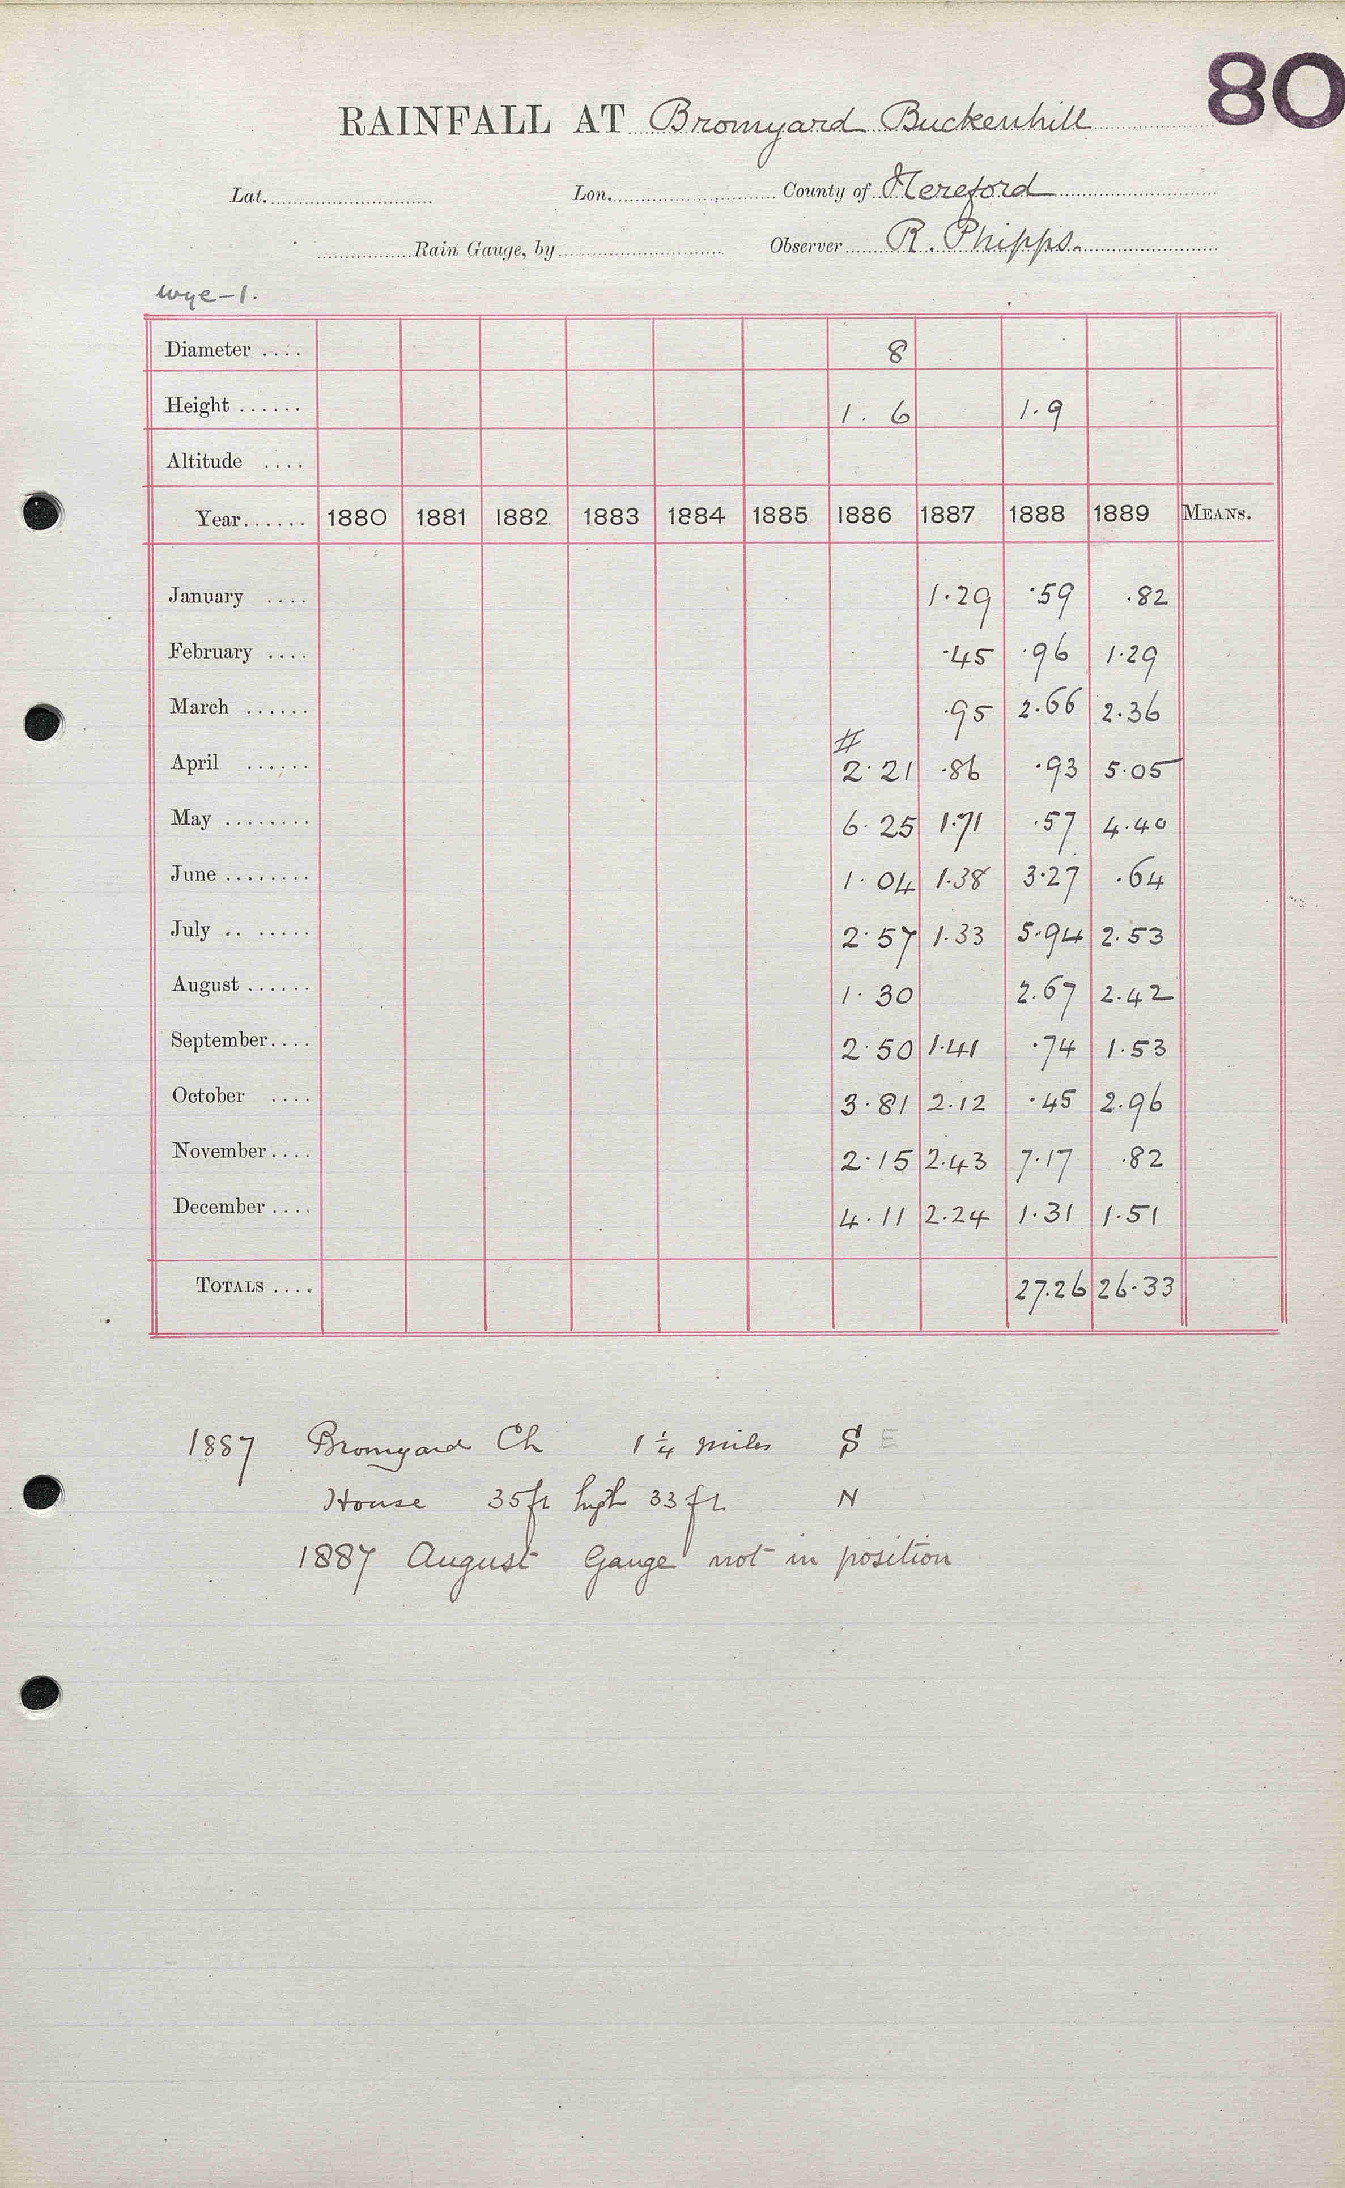 80
RAINFALL AT Bromyard Buckenhill
Lat. Lon. County of Hereford
Rain Gauge, by Observer R. Phipps.
Wye-1.
Diameter .... 8
Height ...... 1. 6 1.9
Altitude ....
Year...... 1880 1881 1882 1883 1884 1885 1886 1887 1888 1889 MEANS.
January .... 1.29 .59 .82
February .... .45 .96 1.29
March ...... .95 2.66 2.36
#
April ...... 2.21 .86 .93 5.05
May ........ 6.25 1.71 .57 4.40
June ........ 1.04 1.38 3.27 .64
July .. ..... 2.57 1.33 5.94 2.53
August ...... 1.30 2.67 2.42
September.... 2.50 1.41 .74 1.53
October .... 3.81 2.12 .45 2.96
November.... 2.15 2.43 7.17 .82
December .... 4.11 2.24 1.31 1.51
TOTALS .... 27.26 26.33
1887 Bromyard Ch 1 1/4 miles S E
House 35ft high 33 ft. N
1887 August Gauge not in position